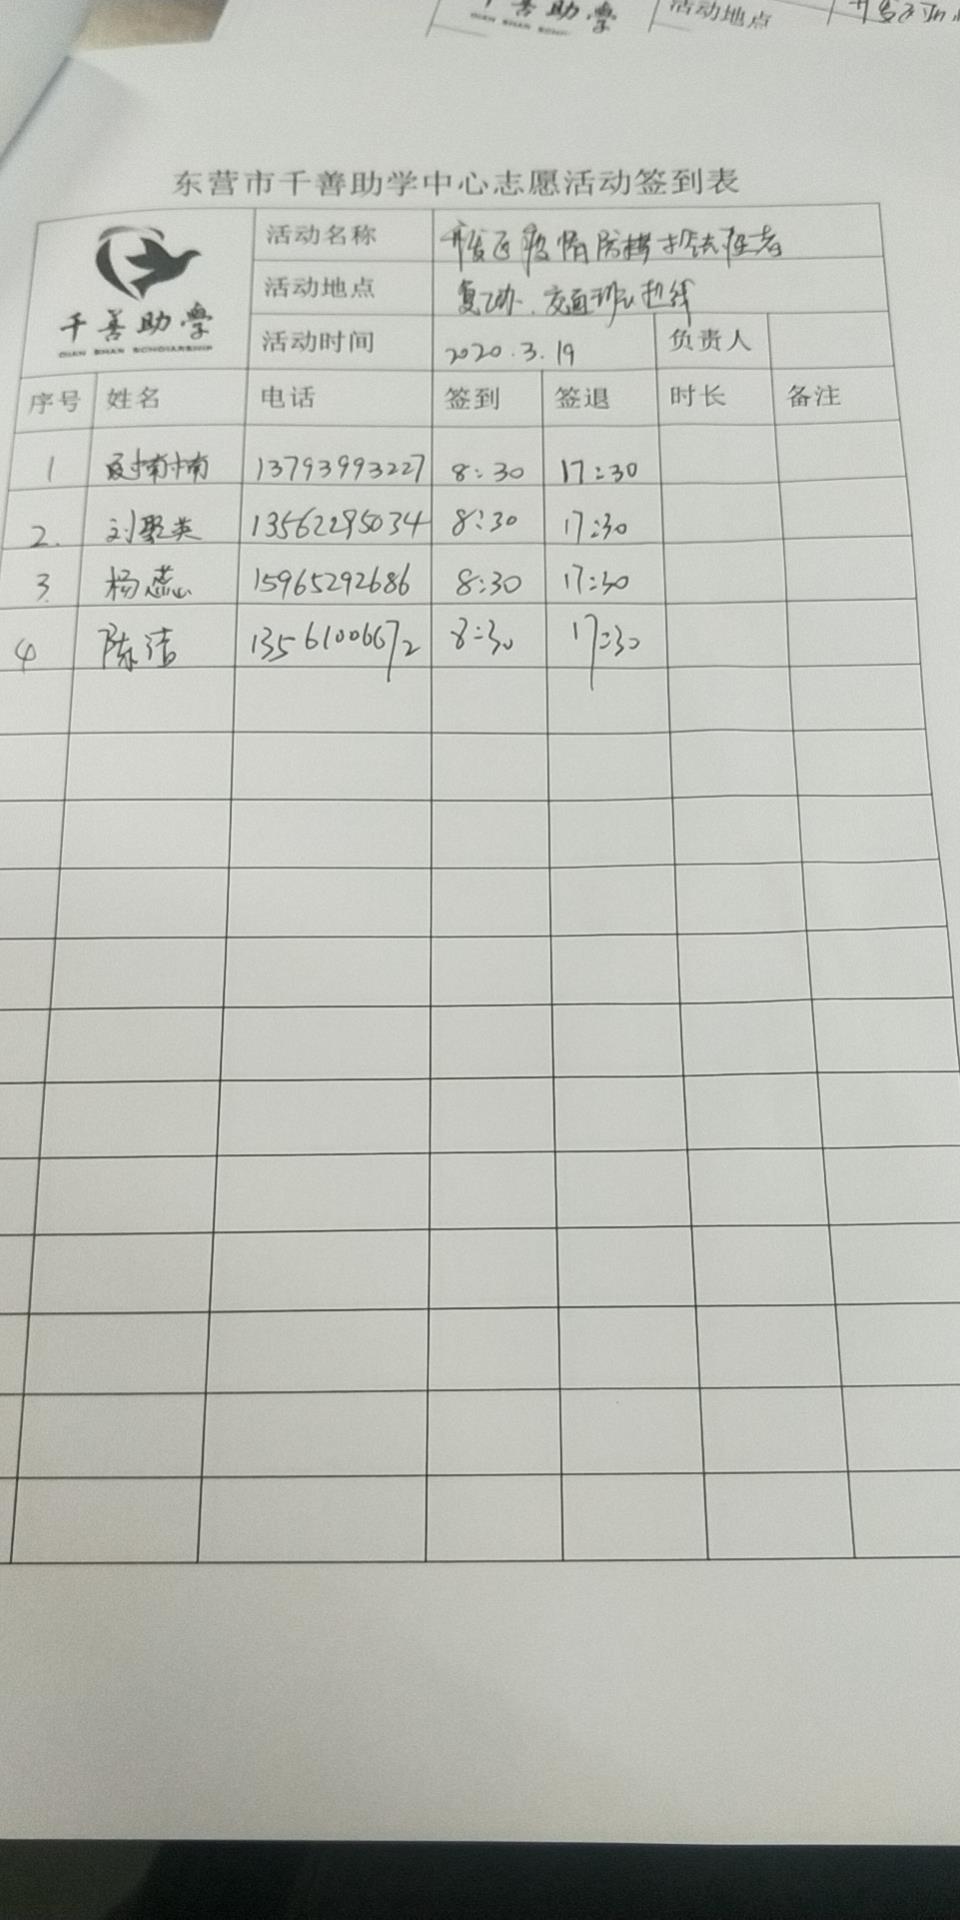 千善助学
活动地点
东营市千善助学中心志愿活动签到表
千善助学
QIAN SHAN SCHOLARSHIP
活动名称 开发区疫情防控
活动地点 复工办、热线
活动时间 2020.3.19 负责人
序号 姓名 电话 签到 签退 时长 备注
1 楠楠 13793993227 8:30 17:30
2. 刘聚英 13562295034 8:30 17:30
3. 杨蕊 15965292686 8:30 17:30
4 陈洁 13561006672 8:30 17:30